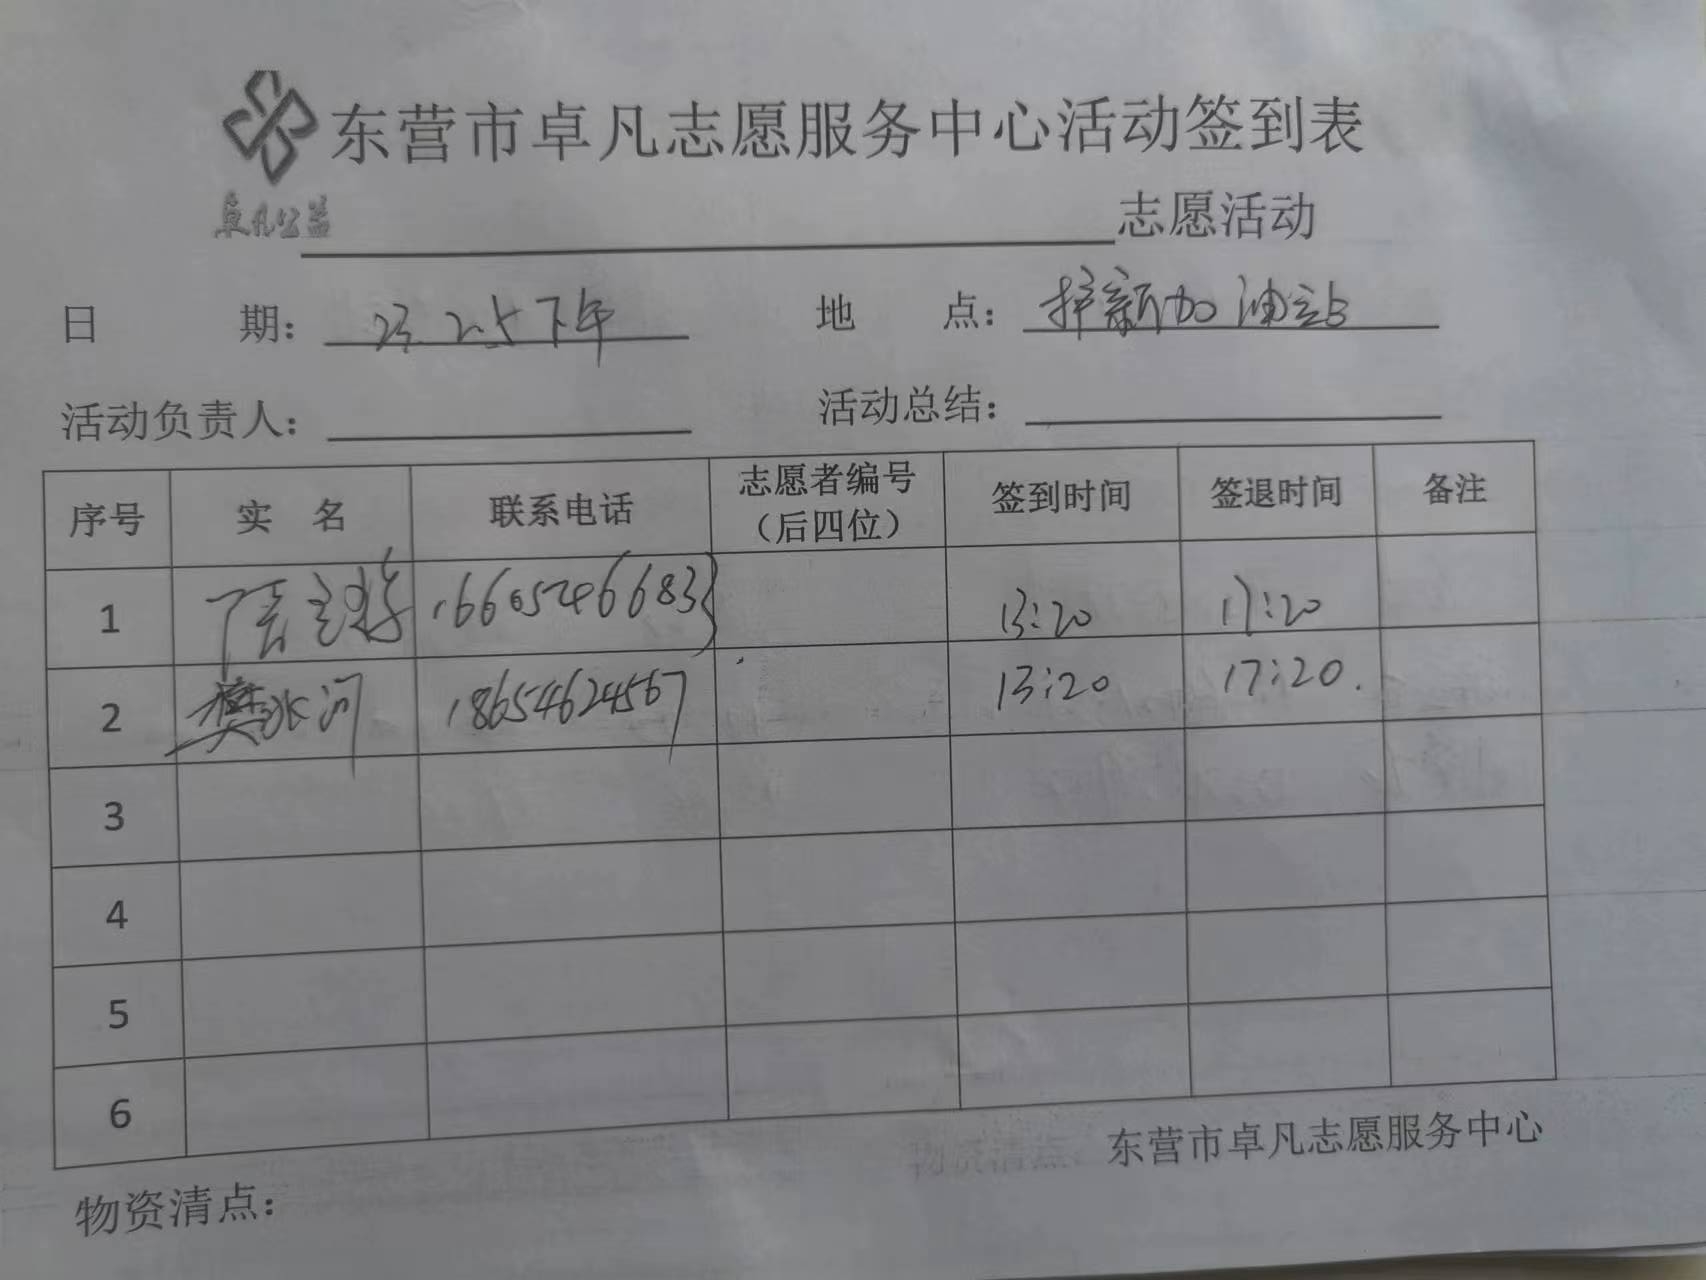 东营市卓凡志愿服务中心活动签到表
卓凡公益
志愿活动
日 期: 23.2.5下午 地 点: 护新加油站
活动负责人: 活动总结:
序号 实 名 联系电话 志愿者编号（后四位） 签到时间 签退时间 备注
1 13:20 17:20
2 樊冰河 18654624567 13:20 17:20.
3
4
5
6
东营市卓凡志愿服务中心
物资清点: